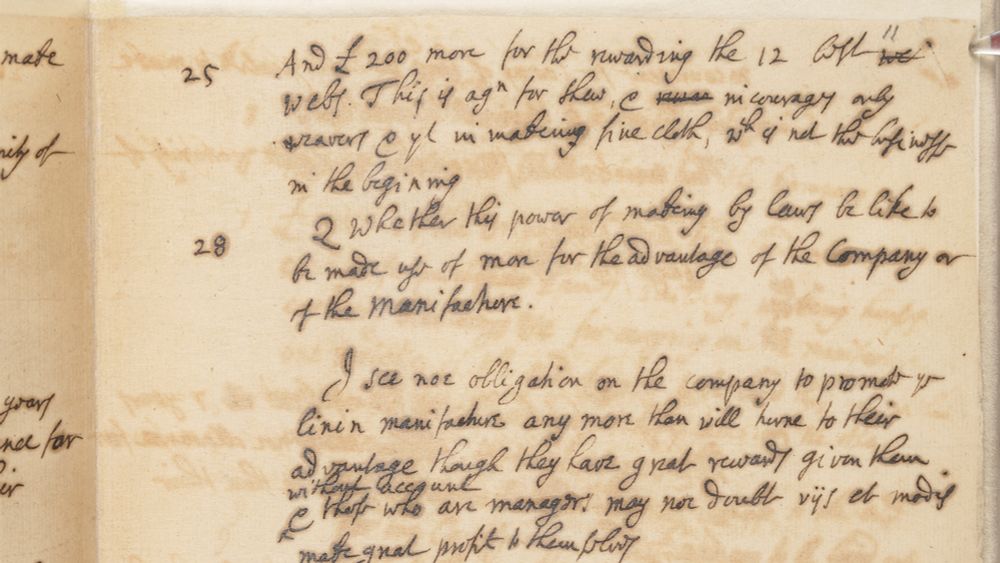 made
25 And £ 200 more for the rewarding the 12 best
webs. This is agn for shew, & incourages only
weavers & yt in makeing fine cloth, wch is not the businesse
in the begining
nity of
28 Q Whether this power of makeing by laws be like to
be made use of more for the advantage of the Company or
of the Manifacture.
I see noe obligation on the company to promote ye
linin manifacture any more than will turne to their
years
advantage though they have great rewards given them
nce for
without account
& those who are managers may noe doubt vijs et modis
make great profit to themselves